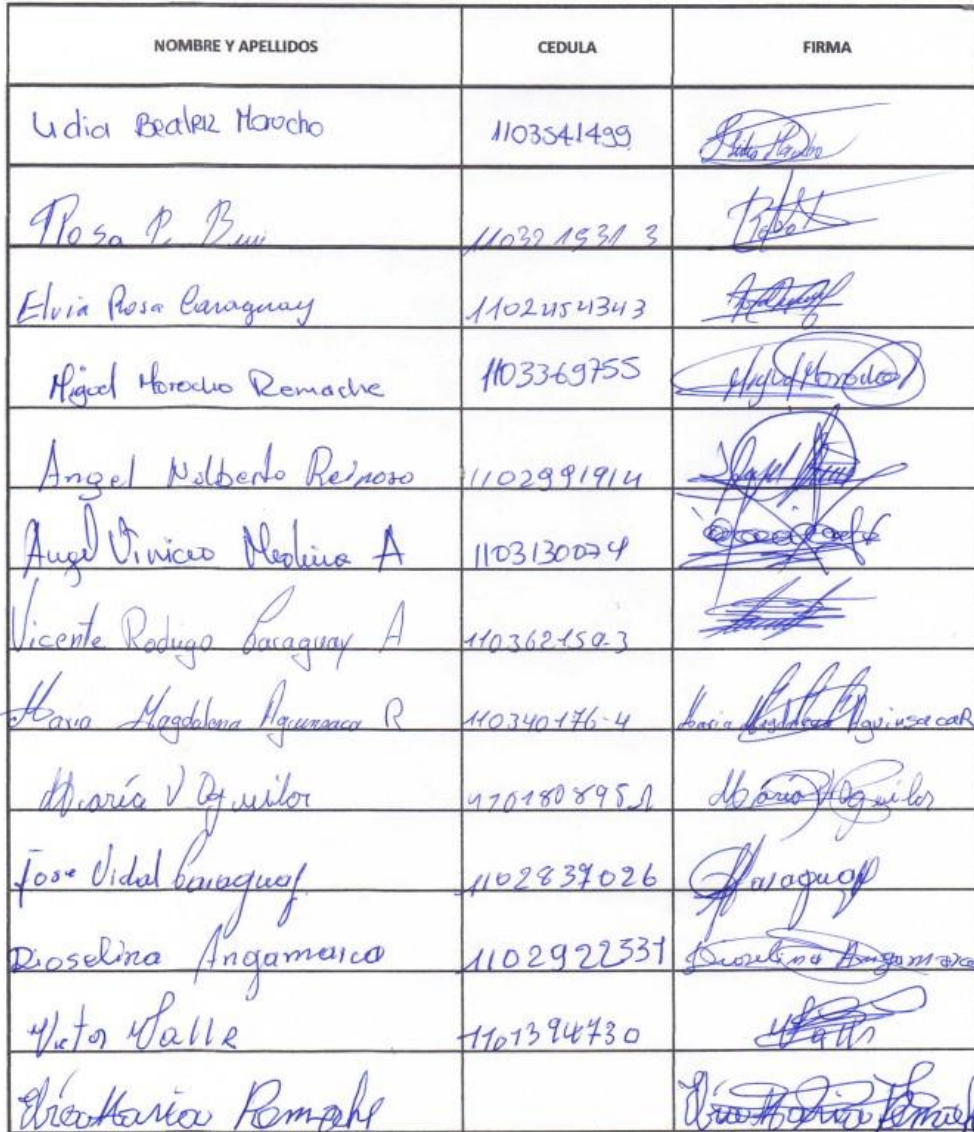 NOMBRE Y APELLIDOS CEDULA FIRMA
Lidia Beatriz Morocho 1103541499
Rosa P.
Elvia Rosa Caraguay 1102454343
Miguel Morocho Remache 1103369755 Miguel Morocho
Angel Nolberto Reinoso 1102991914 Angel
Angel Vinicio Medina A 1103130074
Vicente Rodrigo Caraguay A 110362150-3
Maria Magdalena Aguinsaca R 110340176-4 Maria Magdalena Aguinsaca R
María V Aguilar María V Aguilar
Jose Vidal Caraguay 1102837026 Caraguay
Dioselina Angamarca 1102922331 Dioselina Angamarca
Victor Valle 1101394730 Valle
Maria